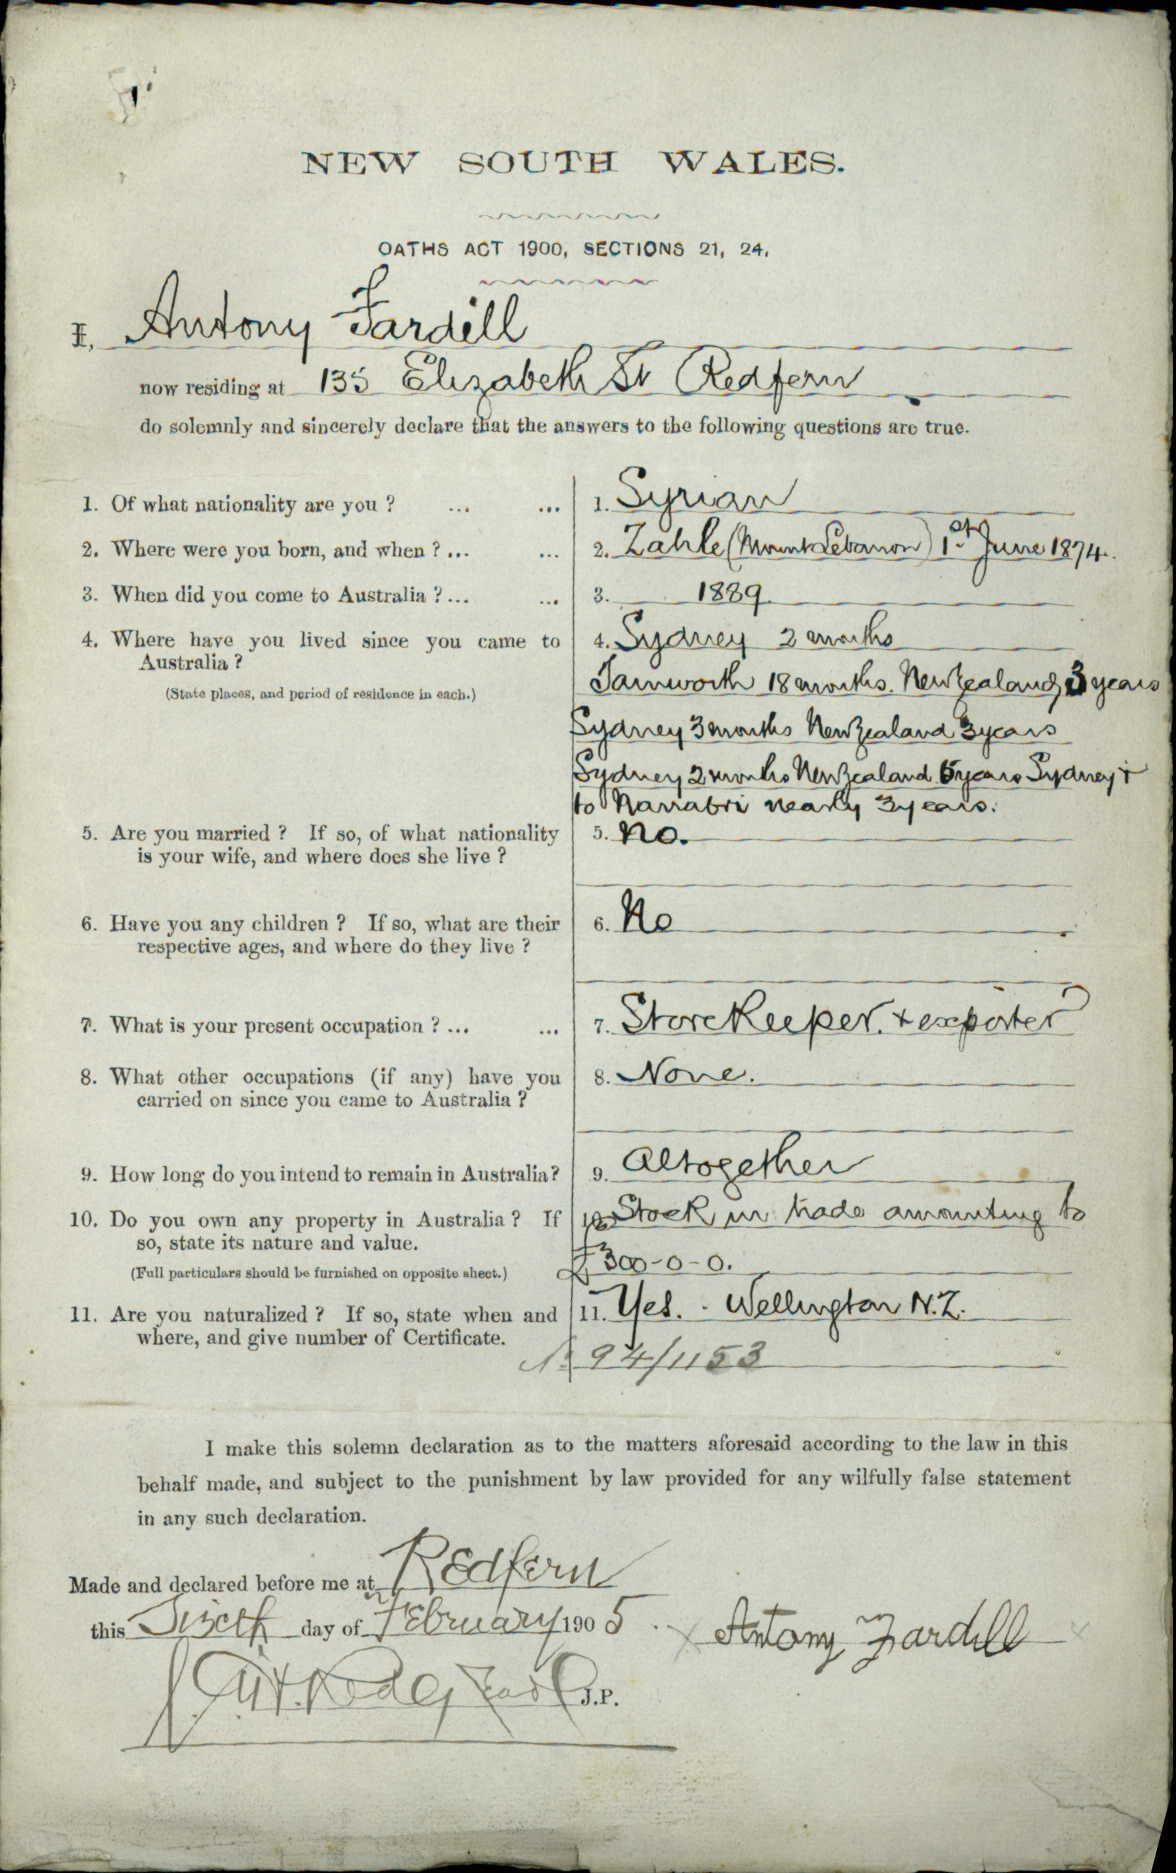 NEW SOUTH WALES.
OATHS ACT 1900, SECTIONS 21, 24.
I, Antony Fardell
now residing at 135 Elizabeth St Redfern
do solemnly and sincerely declare that the answers to the following questions are true.
1. Of what nationality are you ? ... ... 1. Syrian
2. Where were you born, and when ? ... ... 2. Zahle (Mount Lebanon) 1st June 1874.
3. When did you come to Australia ? ... ... 3. 1889
4. Where have you lived since you came to 4. Sydney 2 months
Australia ?
(State places, and period of residence in each.) Tamworth 18 months. New Zealand, 3 years
Sydney 3 months New Zealand 3 years
Sydney 2 months New Zealand 5 years Sydney +
to Narrabri nearly 3 years.
5. Are you married ? If so, of what nationality 5. No.
is your wife, and where does she live ?
6. Have you any children ? If so, what are their 6. No
respective ages, and where do they live ?
7. What is your present occupation ? ... ... 7. StoreKeeper. + exporter
8. What other occupations (if any) have you 8. None.
carried on since you came to Australia ?
9. How long do you intend to remain in Australia? 9. Altogether
10. Do you own any property in Australia ? If 10. Stock in trade amounting to
so, state its nature and value.
(Full particulars should be furnished on opposite sheet.) £300-0-0.
11. Are you naturalized ? If so, state when and 11. Yes. - Wellington N.Z.
where, and give number of Certificate.
No 94/1153
I make this solemn declaration as to the matters aforesaid according to the law in this
behalf made, and subject to the punishment by law provided for any wilfully false statement
in any such declaration.
Made and declared before me at Redfern
this Sixth day of February 1905. x Antony Fardell x
J.P.